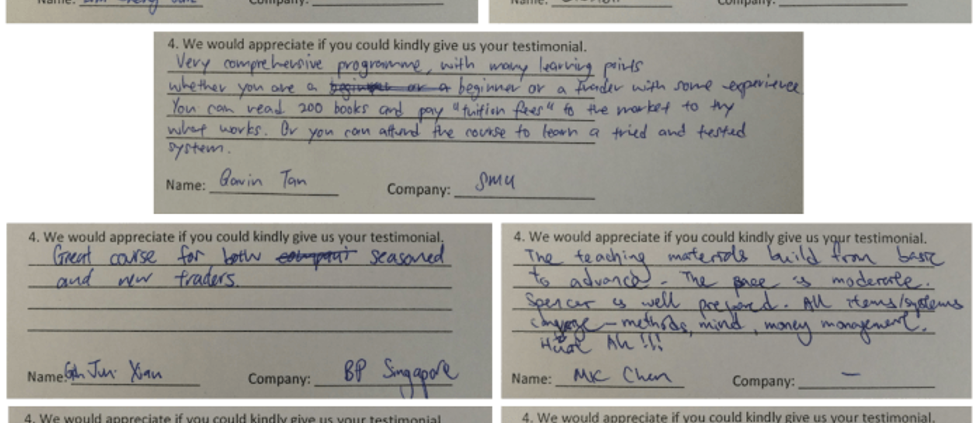 Name:
Company:
Company:
4. We would appreciate if you could kindly give us your testimonial.
Very comprehensive programme, with many learning points
whether you are a beginner or a beginner or a trader with some experience
You can read 200 books and pay "tuition fees" to the market to try
what works. Or you can attend the course to learn a tried and tested
system.
Name: Gavin Tan Company: SMU
4. We would appreciate if you could kindly give us your testimonial.
Great course for both seasoned
and new traders.
Name: Jun Xian Company: BP Singapore
4. We would appreciate if you could kindly give us your testimonial.
The teaching materials build from basic
to advance. The pace is moderate.
Spencer is well prepared. All items/systems
converge – methods, mind, money management.
Huat Ah!!!
Name: MK Chen Company: —
4. We would appreciate if you could kindly give us your testimonial.
4. We would appreciate if you could kindly give us your testimonial.